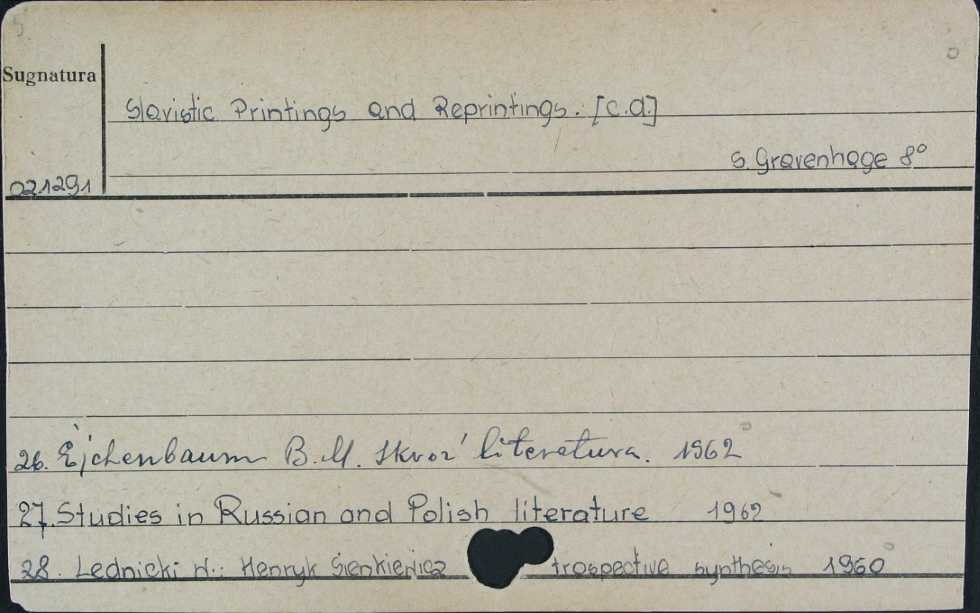 Sugnatura
Slavistic Printings and Reprintings. [c.d.]
s. Gravenhage 8°
021291
26. Ejchenbaum B.M. Skvoz' literatura. 1962
27. Studies in Russian and Polish literature 1962
28. Lednicki W.: Henryk Sienkiewicz trospective synthesis 1960